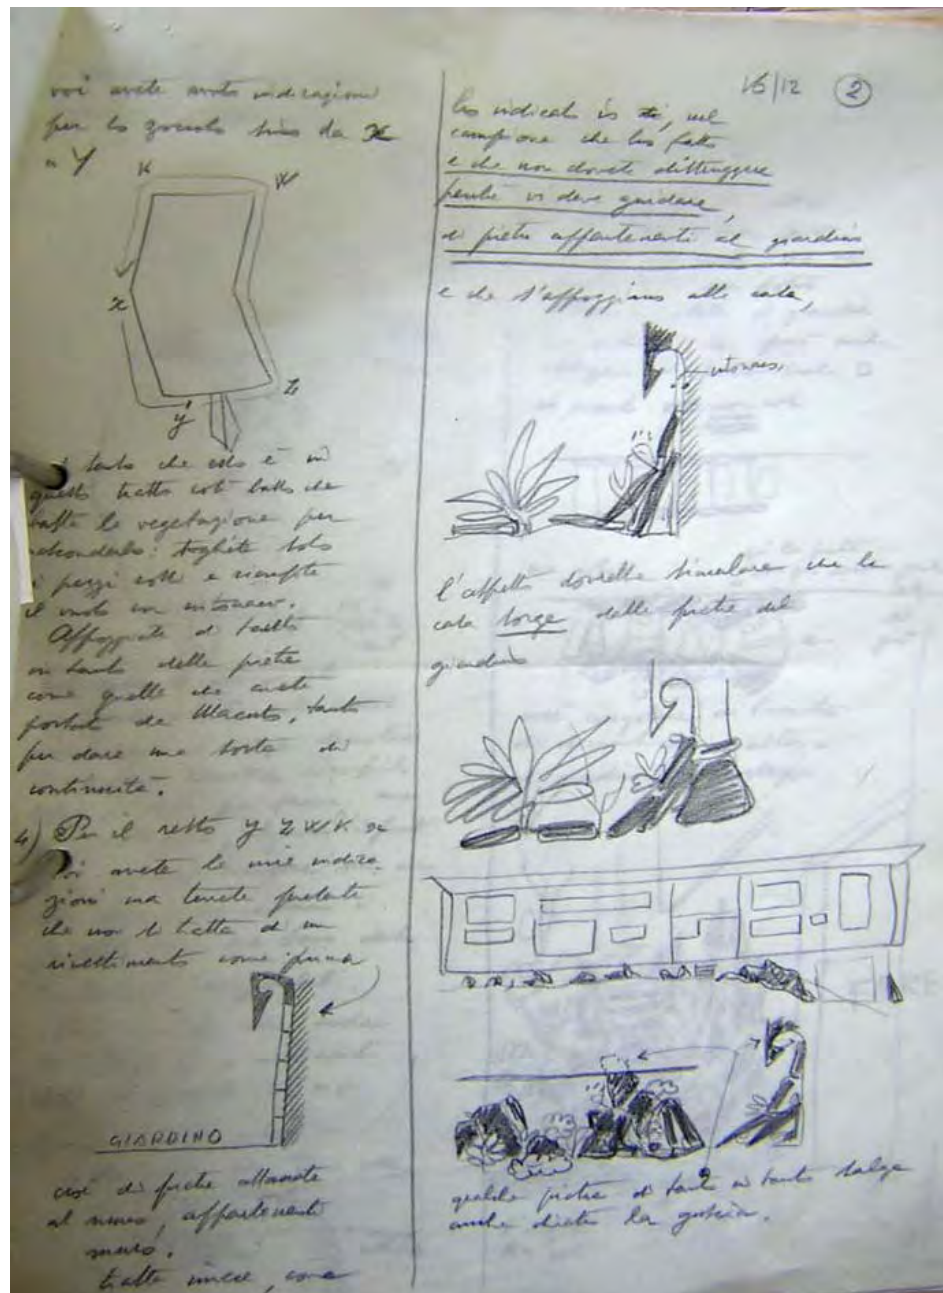 voi avete avuto indicazioni
per lo zoccolo fino da x
a y
K W
x
y z
tanto che esso è in
questo tratto così basso che
basta la vegetazione per
nasconderlo: togliete solo
i pezzi rotti e riempite
il vuoto con intonaco.
Appoggiate di tratto
in tanto delle pietre
come quelle che avete
portate da Macuto, tanto
per dare una sorta di
continuità.
4) Per il resto y z w k x
voi avete le mie indica-
zioni ma tenete presente
che non si tratta di un
rivestimento come prima
GIARDINO
cioè di pietre attaccate
al muro, appartenenti
muro.
tratta invece, come
15/12 2
ho indicato in, nel
campione che ho fatto
e che non dovete distruggere
perché vi deve guidare,
di pietre appartenenti al giardino
e che s'appoggiano alla casa,
intonaco
l'aspetto dovrebbe simulare che la
casa sorge dalle pietre del
giardino
qualche pietra di tanto in tanto salga
anche dietro la goccia.